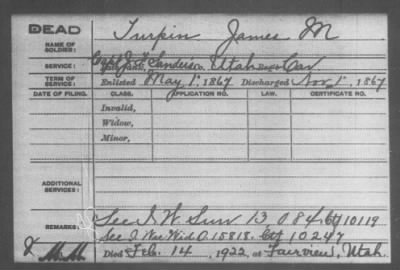 DEAD
NAME OF SOLDIER: Turpin James M
SERVICE: Capt Sanders Co. Utah Cav
TERM OF SERVICE: Enlisted May 1, 1867 Discharged Nov 1, 1867
DATE OF FILING. CLASS. APPLICATION NO. LAW. CERTIFICATE NO.
Invalid,
Widow,
Minor,
ADDITIONAL SERVICES:
REMARKS: See I. W. Surv 13084 Ctf 10119
See I. War Wid O. 15818. Ctf 10247
X M.M. Died Feb. 14, 1922, at Fairview, Utah.